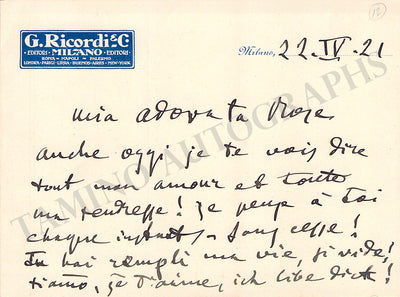 G. Ricordi & C.
EDITORI MILANO EDITORI
ROMA - NAPOLI - PALERMO
LONDRA - PARIGI - LIPSIA - BUENOS-AIRES - NEW-YORK
Milano, 22.IV.21
mia adorata Rose
anche oggi je te vais dire
tout mon amour et toute
ma tendresse! Je pense à toi
chaque instant, sans cesse!
Tu hai rempli ma vie, si vide!
tiamo, je t'aime, ich libe dich!
TAMINO AUTOGRAPHS